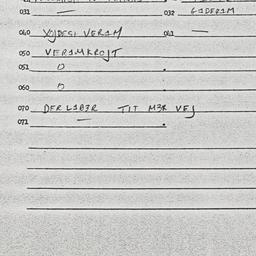 031 — 032 GADERAM
040 VOJDESI VERAM 041 —
050 VERAMKROJT
051 0
060 0
070 DER LABER TIT MER VEJ
071 —